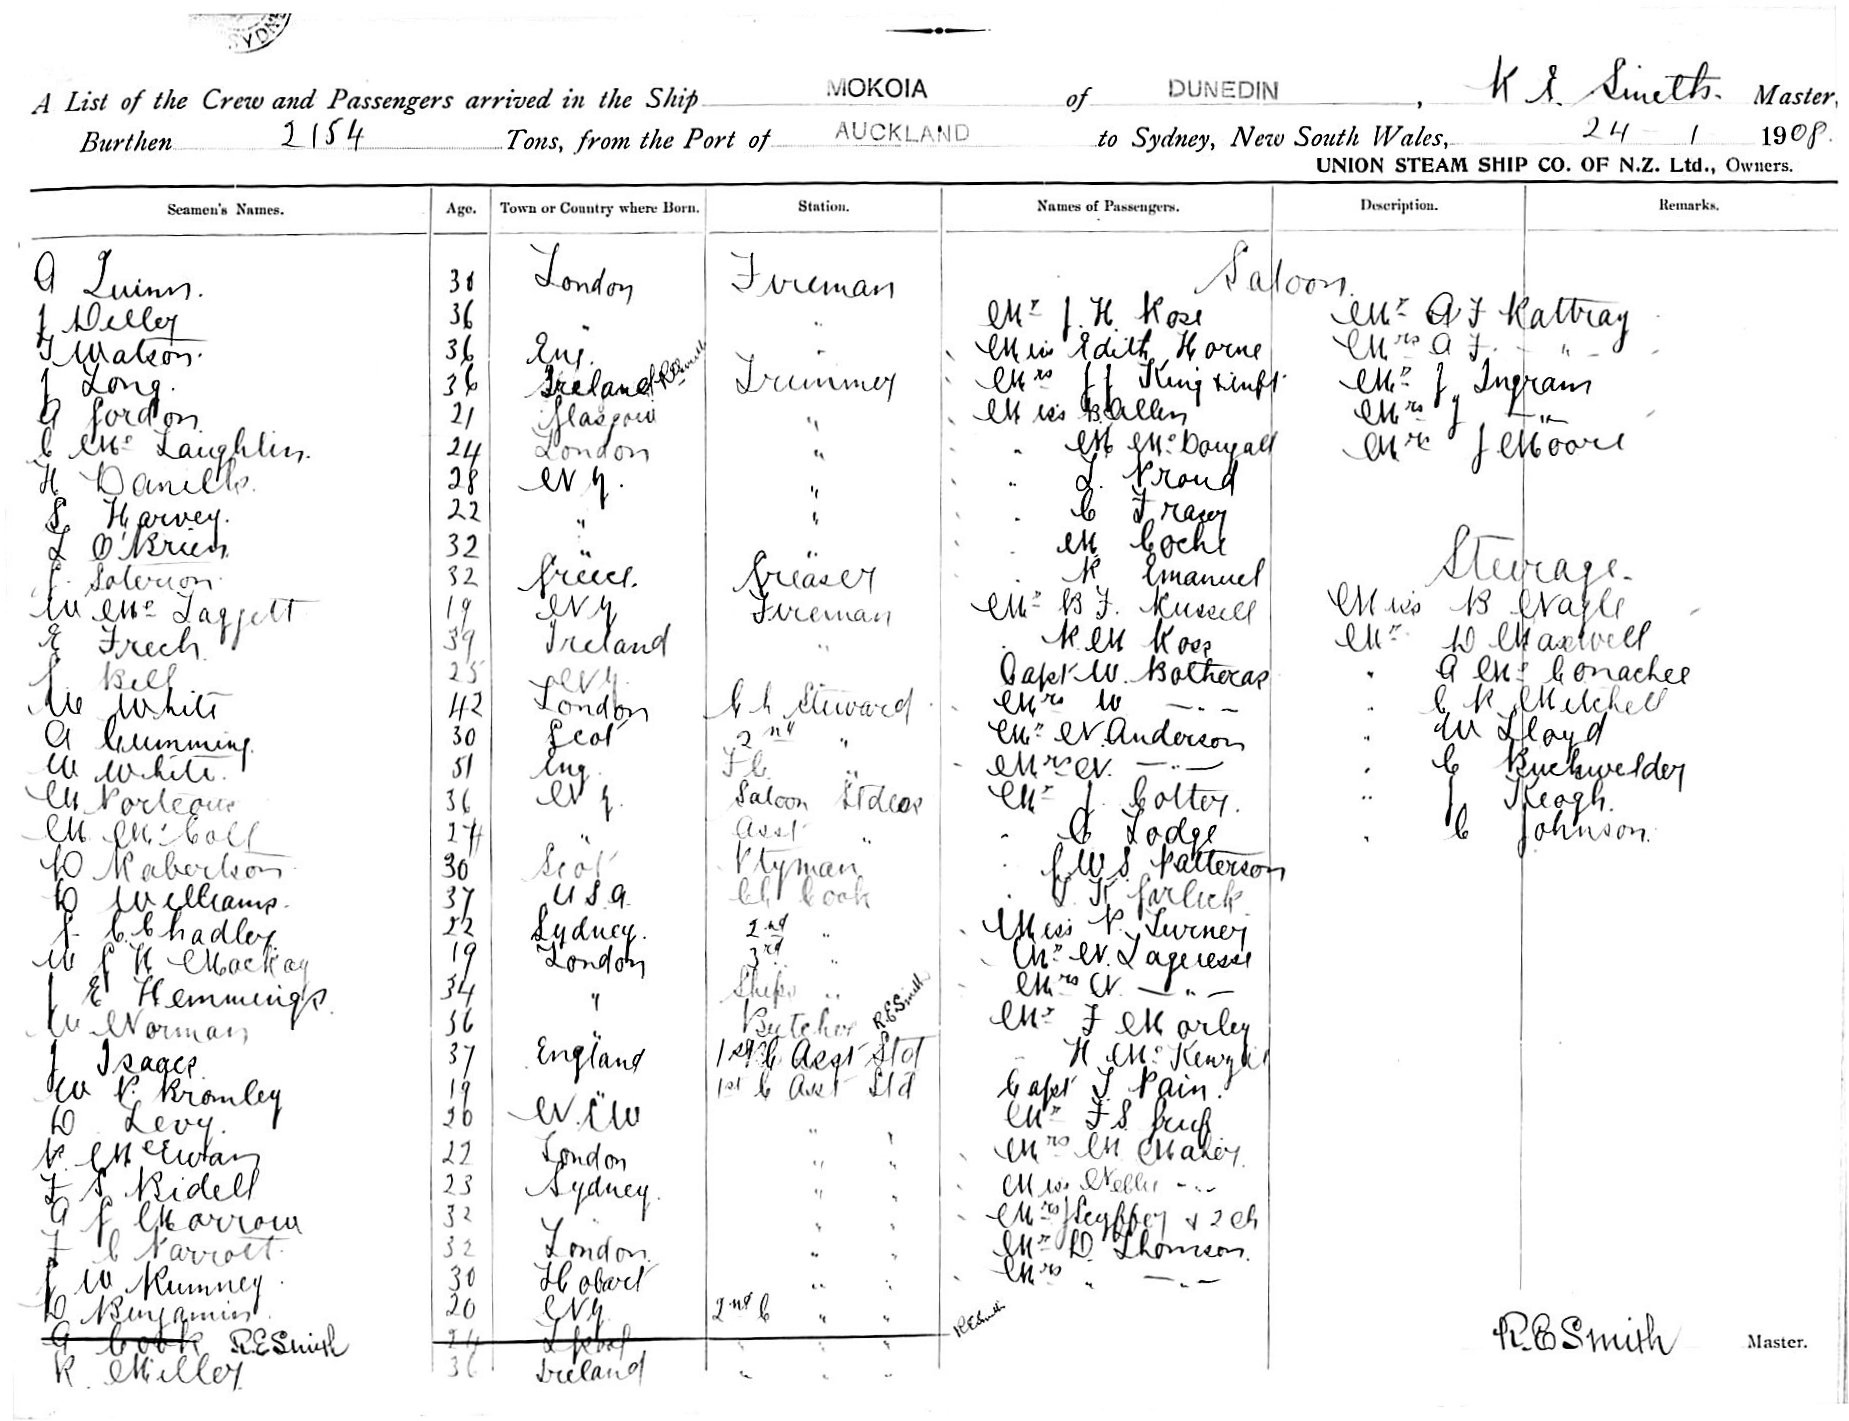 SYDNE
A List of the Crew and Passengers arrived in the Ship MOKOIA of DUNEDIN, R E. Smith. Master,
Burthen 2154 Tons, from the Port of AUCKLAND to Sydney, New South Wales, 24 - 1 1908.
UNION STEAM SHIP CO. OF N.Z. Ltd., Owners.
Seamen's Names. Age. Town or Country where Born. Station. Names of Passengers. Description. Remarks.
Saloon.
A Quinn. 30 London Fireman
J Delley 36 " " Mr J. H. Rose Mr A F Rattray
T Watson. 36 Eng. " Miss Edith Horne Mrs A F. - " -
J Long. 36 Ireland RESmith Trimmer Mrs J J King & inft Mr J Ingram
A Gordon 21 Glasgow " Miss B Allen Mrs J - " -
C McLaughlin. 24 London " " M McDougall Mrs J Moore
H Daniells. 28 N Z. " " L. Proud
S Harvey. 22 " " " C Fraser
L O'Brien 32 " " M Coche
Steerage.
J. Soterion. 32 Greece. Greaser " R Emanuel
W McTaggett 19 N Z Fireman Mr B F. Russell Miss B Nagle
E Frech. 39 Ireland " " R M Ross Mr D Maxwell
J Bell 25 N Z. Capt W. Botheras " A McConachee
W White 42 London Ch Steward Mrs W - " - " C R Mitchell
A Cumming. 30 Scot 2nd " Mr N. Anderson " W Lloyd
W White. 51 Eng. F C " Mrs N. - " - " C Buckwelder
M Porteous 36 N Z. Saloon Stdess Mr J. Cotter. " J Keogh.
M McColl 24 " Asst " " C Lodge " C Johnson.
D Robertson 30 Scot Ptyman " J. W. S. Patterson
D Williams. 37 U.S.A. Ch Cook " T. K Garlick
J. C. Chadley. 22 Sydney. 2nd " Miss P. Turner
W J H Mackay 19 London 3rd " Mr N. Laguesse
J E Hemmings. 34 " Ships " Mrs N. - " -
W Norman 36 " Butcher RESmith Mr F Morley
J Isaacs 37 England 1st C Asst Std " H
W P. Bromley 19 " 1st C Asst Std Capt T. Pain.
D Levy. 20 N.S.W " " Mr F S.
P. McEwan 22 London " " Mrs M Maxey.
F S Ridell 23 Sydney. " " Miss Nellie - " -
A J Morrow 32 " " " Mrs & 2 ch
F C Parrott. 32 London. " " Mr D. Thomson.
J W Rumney. 30 Hobart " " Mrs " - " -
D Benjamin. 20 N Z. 2nd C " "
A Cook RESmith 24 Lpool " " " RESmith
R. Miller. 36 Ireland " " "
R.E Smith Master.